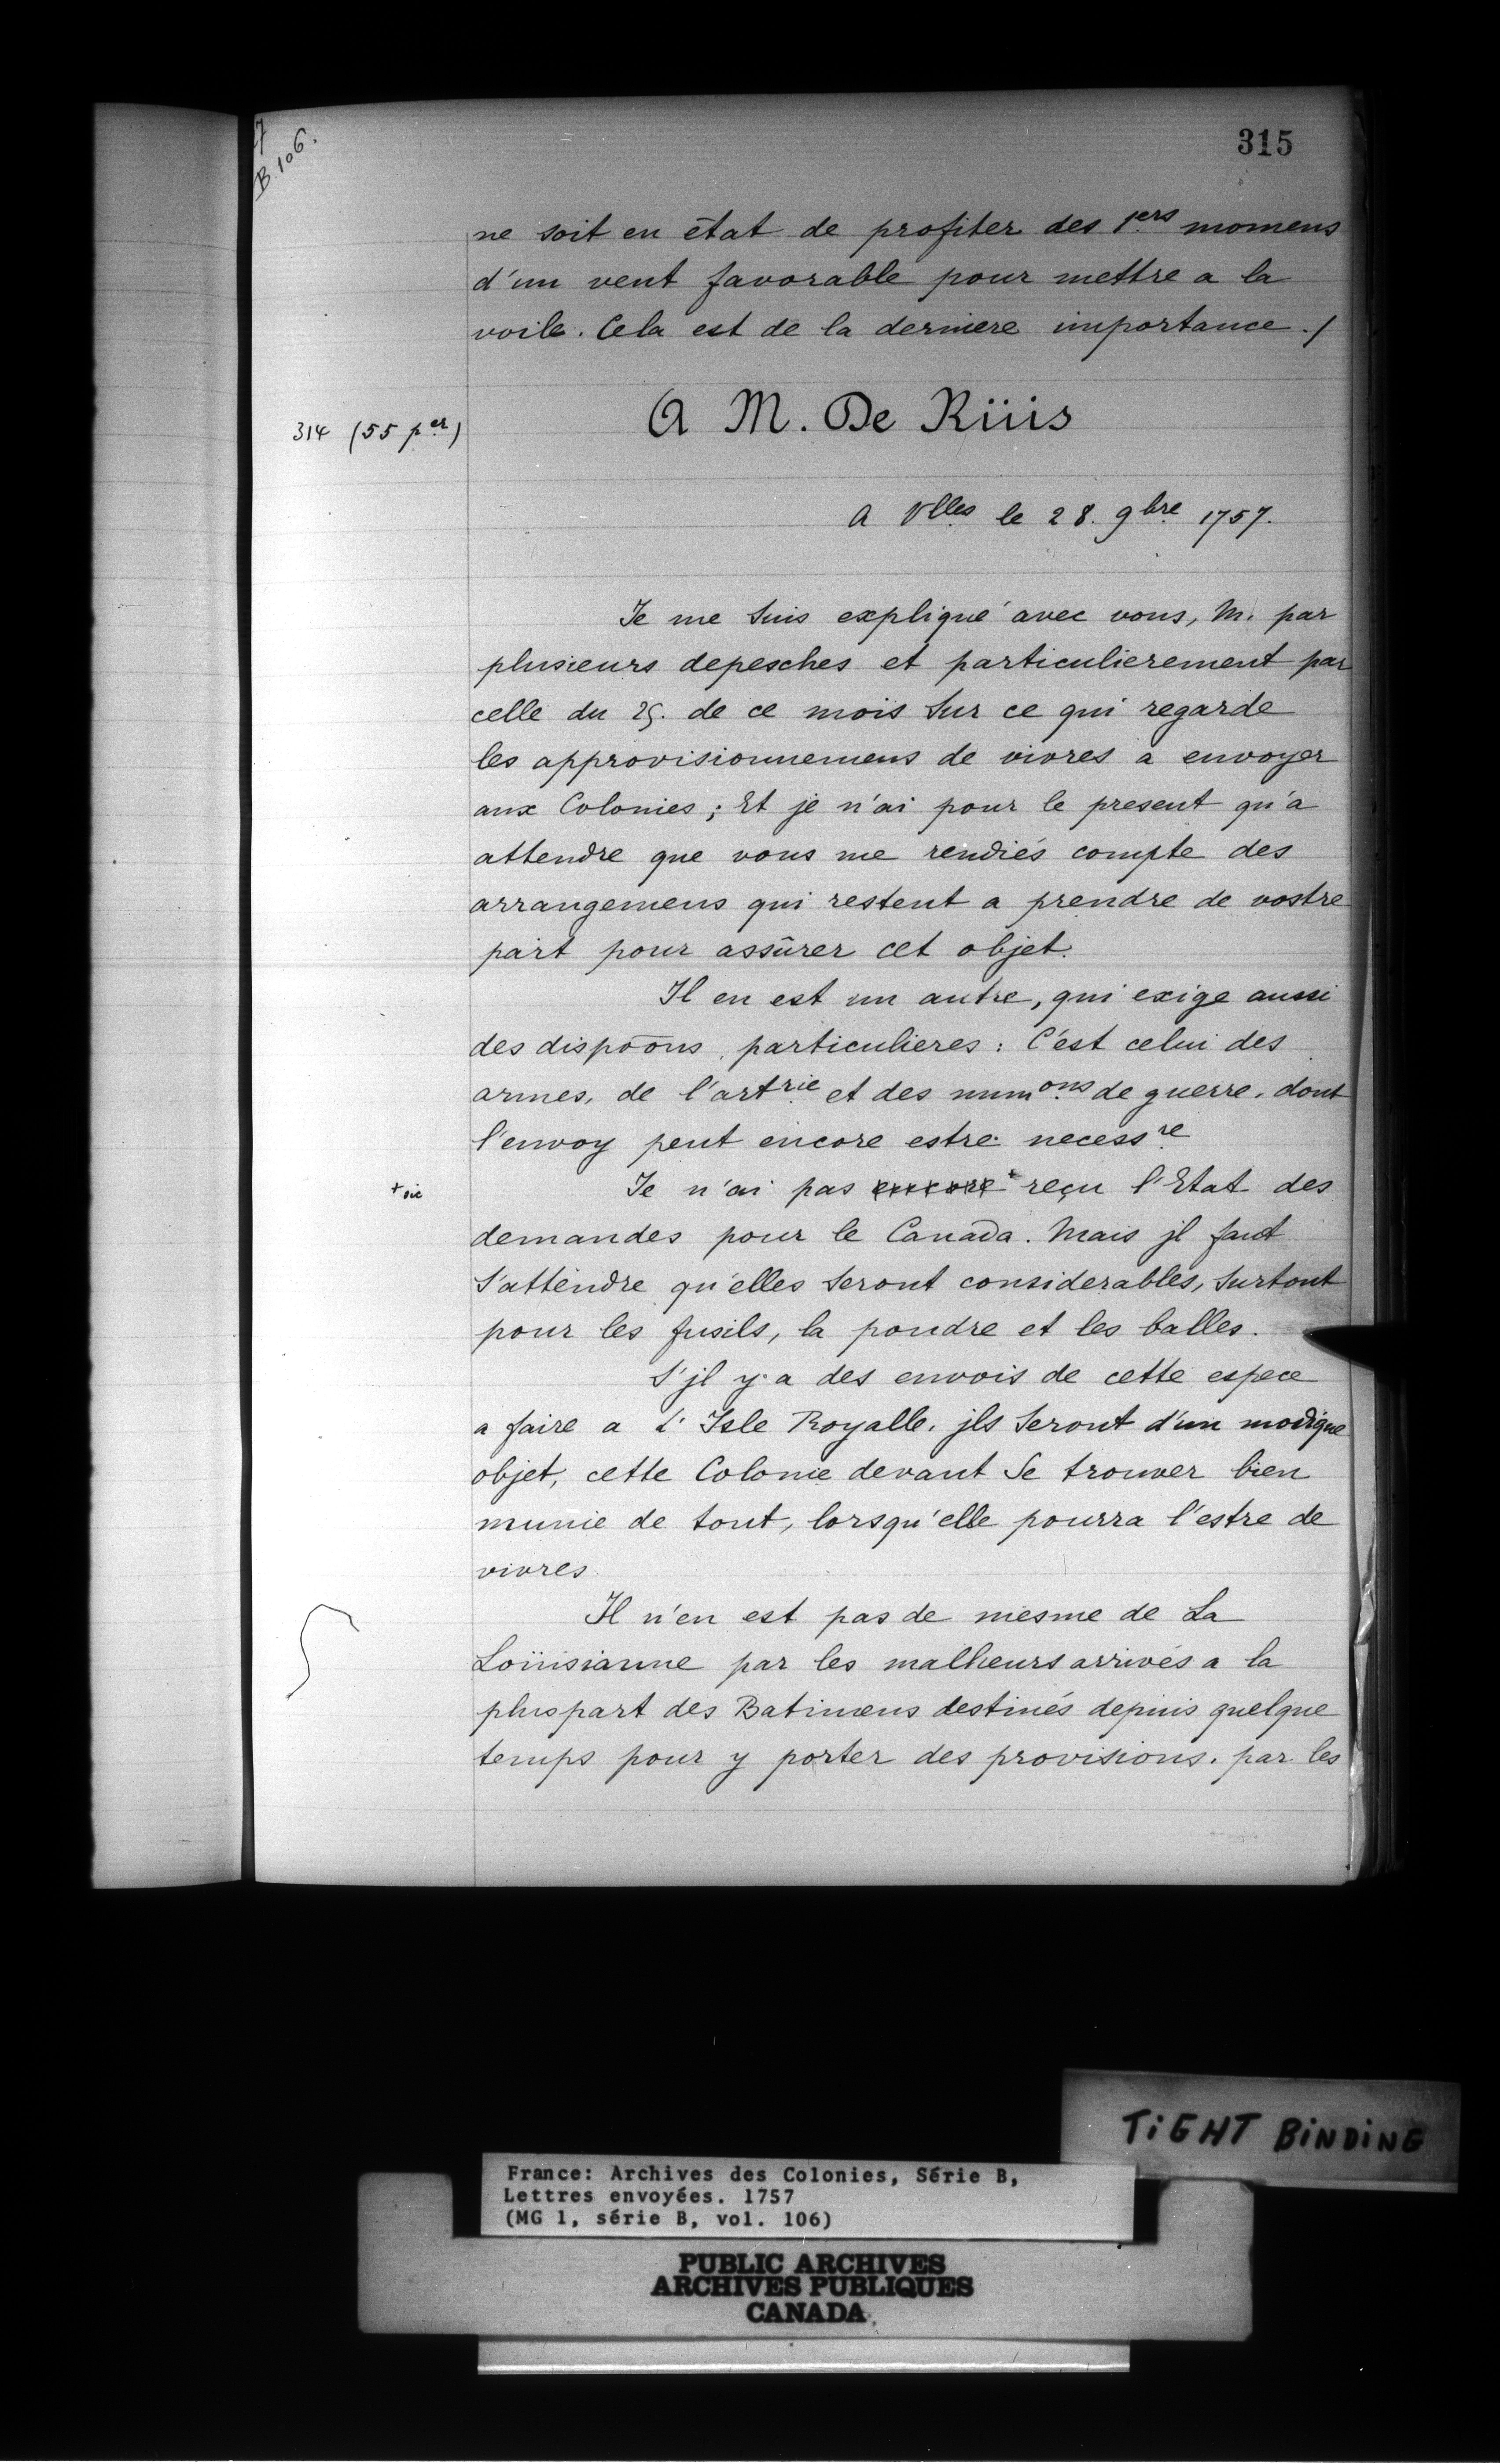 7
B. 106.
315
ne soit en état de profiter des 1ers momens
d'un vent favorable pour mettre a la
voile. Cela est de la derniere importance ./
314 (55 per)
A M. De Rüis
A Vlles le 28. 9bre 1757.
Je me suis expliqué avec vous, M. par
plusieurs depesches et particulierement par
celle du 25. de ce mois sur ce qui regarde
les approvisionnemens de vivres a envoyer
aux Colonies ; Et je n'ai pour le present qu'a
attendre que vous me rendiés compte des
arrangemens qui restent a prendre de vostre
part pour assûrer cet objet.
Il en est un autre, qui exige aussi
des dispōōns particulieres : C'est celui des
armes, de l'artrie et des munons de guerre, dont
l'envoy peut encore estre necessre
+ sic
Je n'ai pas encore + reçu l'Etat des
demandes pour le Canada. Mais jl faut
s'attendre qu'elles seront considerables, surtout
pour les fusils, la poudre et les balles.
S'jl y a des envois de cette espece
a faire a L'Isle Royalle, jls seront d'un modique
objet, cette Colonie devant se trouver bien
munie de tout, lorsqu'elle pourra l'estre de
vivres.
Il n'en est pas de mesme de La
Loüisianne par les malheurs arrivés a la
pluspart des Batimens destinés depuis quelque
temps pour y porter des provisions, par les
TIGHT BINDING
France: Archives des Colonies, Série B,
Lettres envoyées. 1757
(MG 1, série B, vol. 106)
PUBLIC ARCHIVES
ARCHIVES PUBLIQUES
CANADA